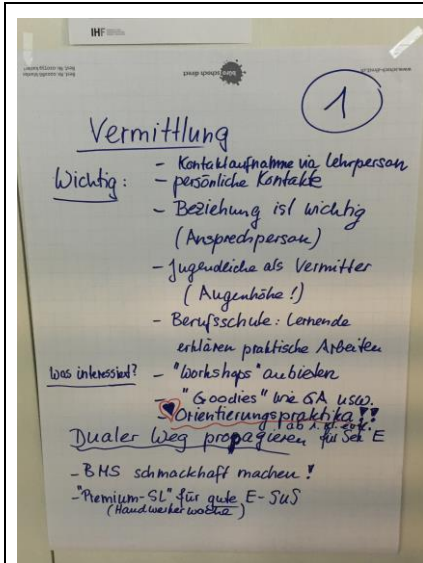 IHF
büro schoch direct
www.schoch-direct.ch
1
Vermittlung
Wichtig: - Kontaktaufnahme via Lehrperson
- persönliche Kontakte
- Beziehung ist wichtig
(Ansprechperson)
- Jugendliche als Vermitter
(Augenhöhe!)
- Berufsschule: Lernende
erklären praktische Arbeiten
Was interessiert? - "Workshops" anbieten
- "Goodies" wie GA usw.
Orientierungspraktika!!
! ab 1.
Dualer Weg propagieren für Sek E
- BMS schmackhaft machen!
- "Premium-SL" für gute E-SuS
(Handwerkerwoche)